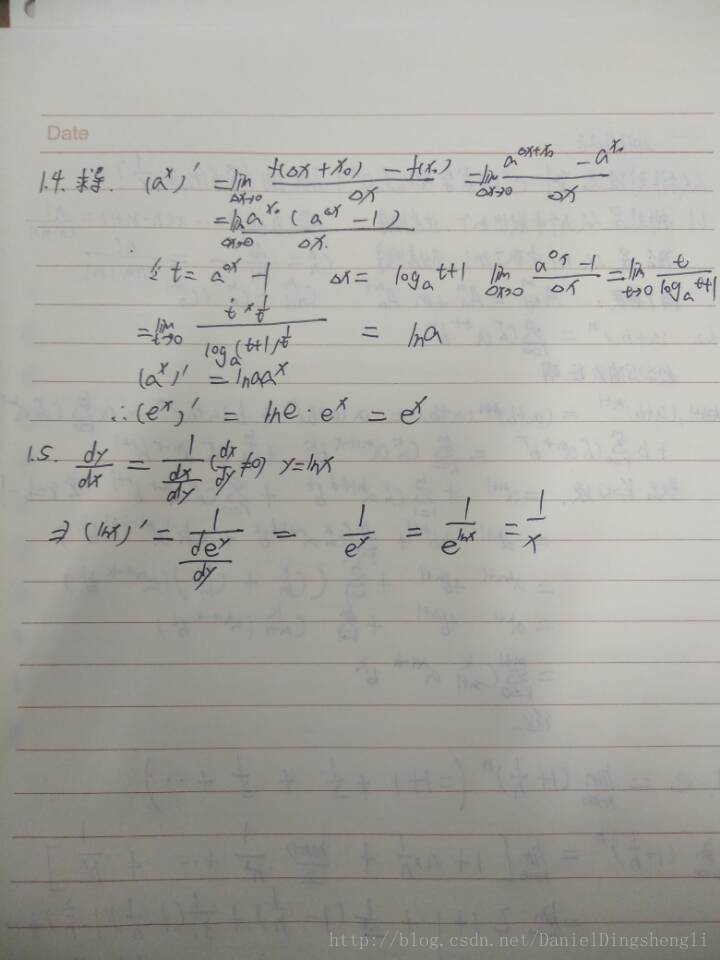 Date
1.4. 求导. (a^x)' = lim_{Δx→0} (f(Δx + x₀) - f(x₀))/Δx = lim_{Δx→0} (a^{Δx+x₀} - a^{x₀})/Δx
= lim_{Δx→0} a^{x₀} (a^{Δx} - 1)/Δx
令 t = a^{Δx} - 1 Δx = log_a t+1 lim_{Δx→0} (a^{Δx} - 1)/Δx = lim_{t→0} t/(log_a t+1)
= lim_{t→0} (t × 1/t)/(log_a (t+1)^{1/t}) = lna
(a^x)' = lna a^x
∴ (e^x)' = lne · e^x = e^x
1.5. dy/dx = 1/(dx/dy) (dx/dy ≠ 0) y = lnx
⇒ (lnx)' = 1/(de^y/dy) = 1/e^y = 1/e^{lnx} = 1/x
http://blog.csdn.net/DanielDingshengli